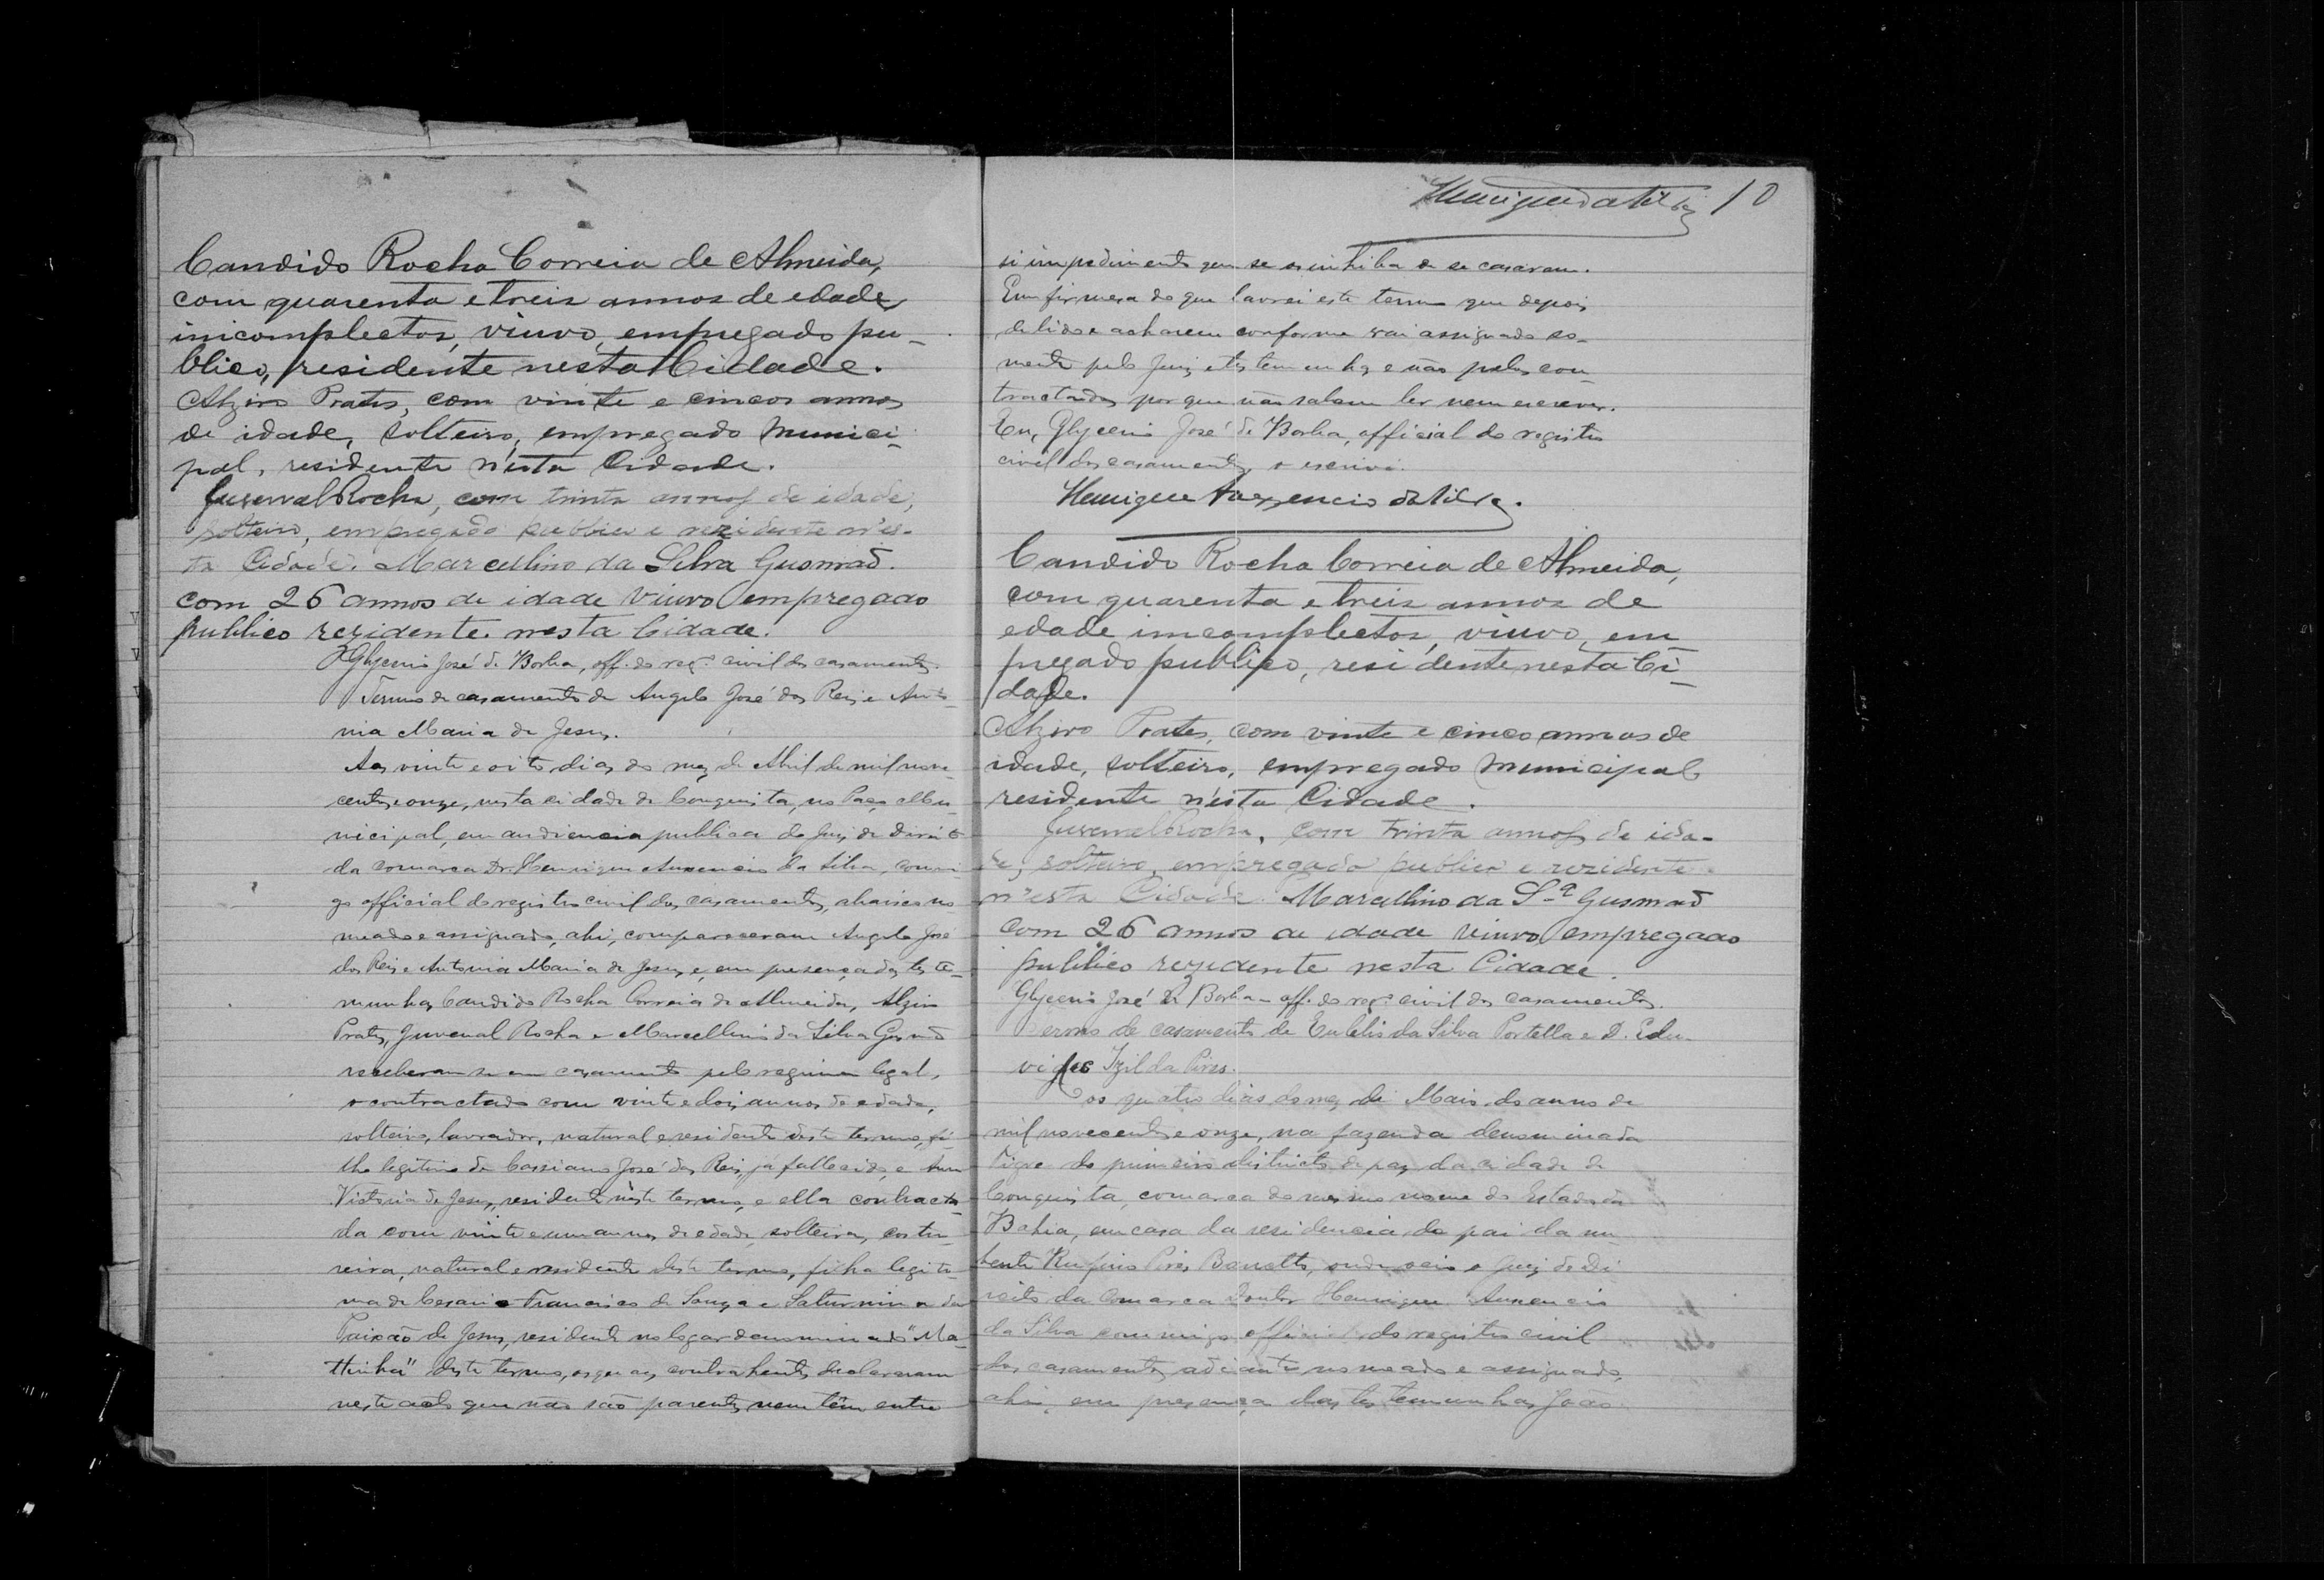 Candido Rocha Correia de Almeida,
com quarenta e treis annos de edade,
inicomplectos, viuvo, empregado pu-
blico, residente nesta Cidade.
Alziro Prates, com vinte e cincos annos
de idade, solteiro, empregado munici-
pal, residente n'esta Cidade.
Juvenal Rocha, com trinta annos de idade,
solteiro, empregado publico e rezidente n'es-
ta Cidade. Marcellino da Silva Gusmaõ.
com 26 annos de idade viuvo empregado
publico rezidente. nesta Cidade.
Glycerio José de Borba, off. do regº. civil dos casamentos.
Termo de casamento de Angelo José dos Reis e Anto-
nia Maria de Jesus.
Aos vinte e oito dias do mez de Abril de mil nove-
centos e onze, nesta cidade de Conquista, no Paço Mu-
nicipal, em audiencia publica do Juiz de Direito
da comarca Dr. Henrique Auxencio da Silva, commi-
go official do registro civil dos casamentos, abaixo no-
meado e assignado, ahi, compareceram Angelo José
dos Reis e Antonia Maria de Jesus e, em presença das teste-
munhas Candido Rocha Correia de Almeida, Alziro
Prates, Juvenal Rocha e Marcellino da Silva Gusmão
receberam-se em casamento pelo regimen legal,
o contractado com vinte e dois annos de edade,
solteiro, lavrador, natural e residente deste termo, fi-
lho legitimo de Cassiano José dos Reis, já fallecido, e Anna
Victoria de Jesus, residente neste termo, e ella contracta-
da com vinte e um annos de edade, solteira, costu-
reira, natural e residente deste termo, filha legiti-
ma de Cesario Francisco de Souza e Saturnina da
Paixão de Jesus, residente no logar denominado "Ma-
ttinha" deste termo, os quaes contrahentes declararam
neste acto que não são parentes nem têm entre
Henrique da Silva 10
si impedimento que se os inhiba de se casarem.
Em firmeza do que lavrei este termo que depois
de lido e acharem conforme vai assignado so-
mente pelo Juiz e testemunhas e não pelos con-
tractados por que não sabem ler nem escrever.
Eu, Glycerio José de Borba, official do registro
civil dos casamentos o escrivi.
Henrique Auxencio da Silva.
Candido Rocha Correia de Almeida,
com quarenta e treis annos de
edade imcomplectos, viuvo, em
pregado publico, residente nesta Ci-
dade.
Alziro Prates, com vinte e cinco annos de
idade, solteiro, empregado municipal
residente n'esta Cidade.
Juvenal Rocha, com trinta annos de ida-
de, solteiro, empregado publico e rezidente
n'esta Cidade. Marcellino da Sª Gusmaõ
com 26 annos de idade viuvo empregado
publico rezidente nesta Cidade.
Glycerio José de Borba off. do regº. civil dos casamentos.
Termo de casamento de Eulelio da Silva Portella e D. Edu-
viges Izilda Pires.
os quatro dias do mez de Maio do anno de
mil novecentos e onze, na fazenda denominada
Tigre do primeiro districto de paz da cidade de
Conquista, comarca do mesmo nome do Estado da
Bahia, em casa da residencia do pai da nu-
bente Rufino Pires onde veio o Juiz de Di
reito da Comarca Doutor Henrique Auxencio
da Silva commigo official do registro civil
dos casamentos adiante nomeado e assignado,
ahi, em presença das testemunhas João